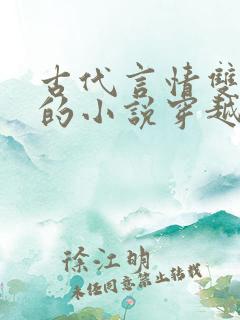 古代言情雙
的小说穿越
徐江明
未经同意禁止转载